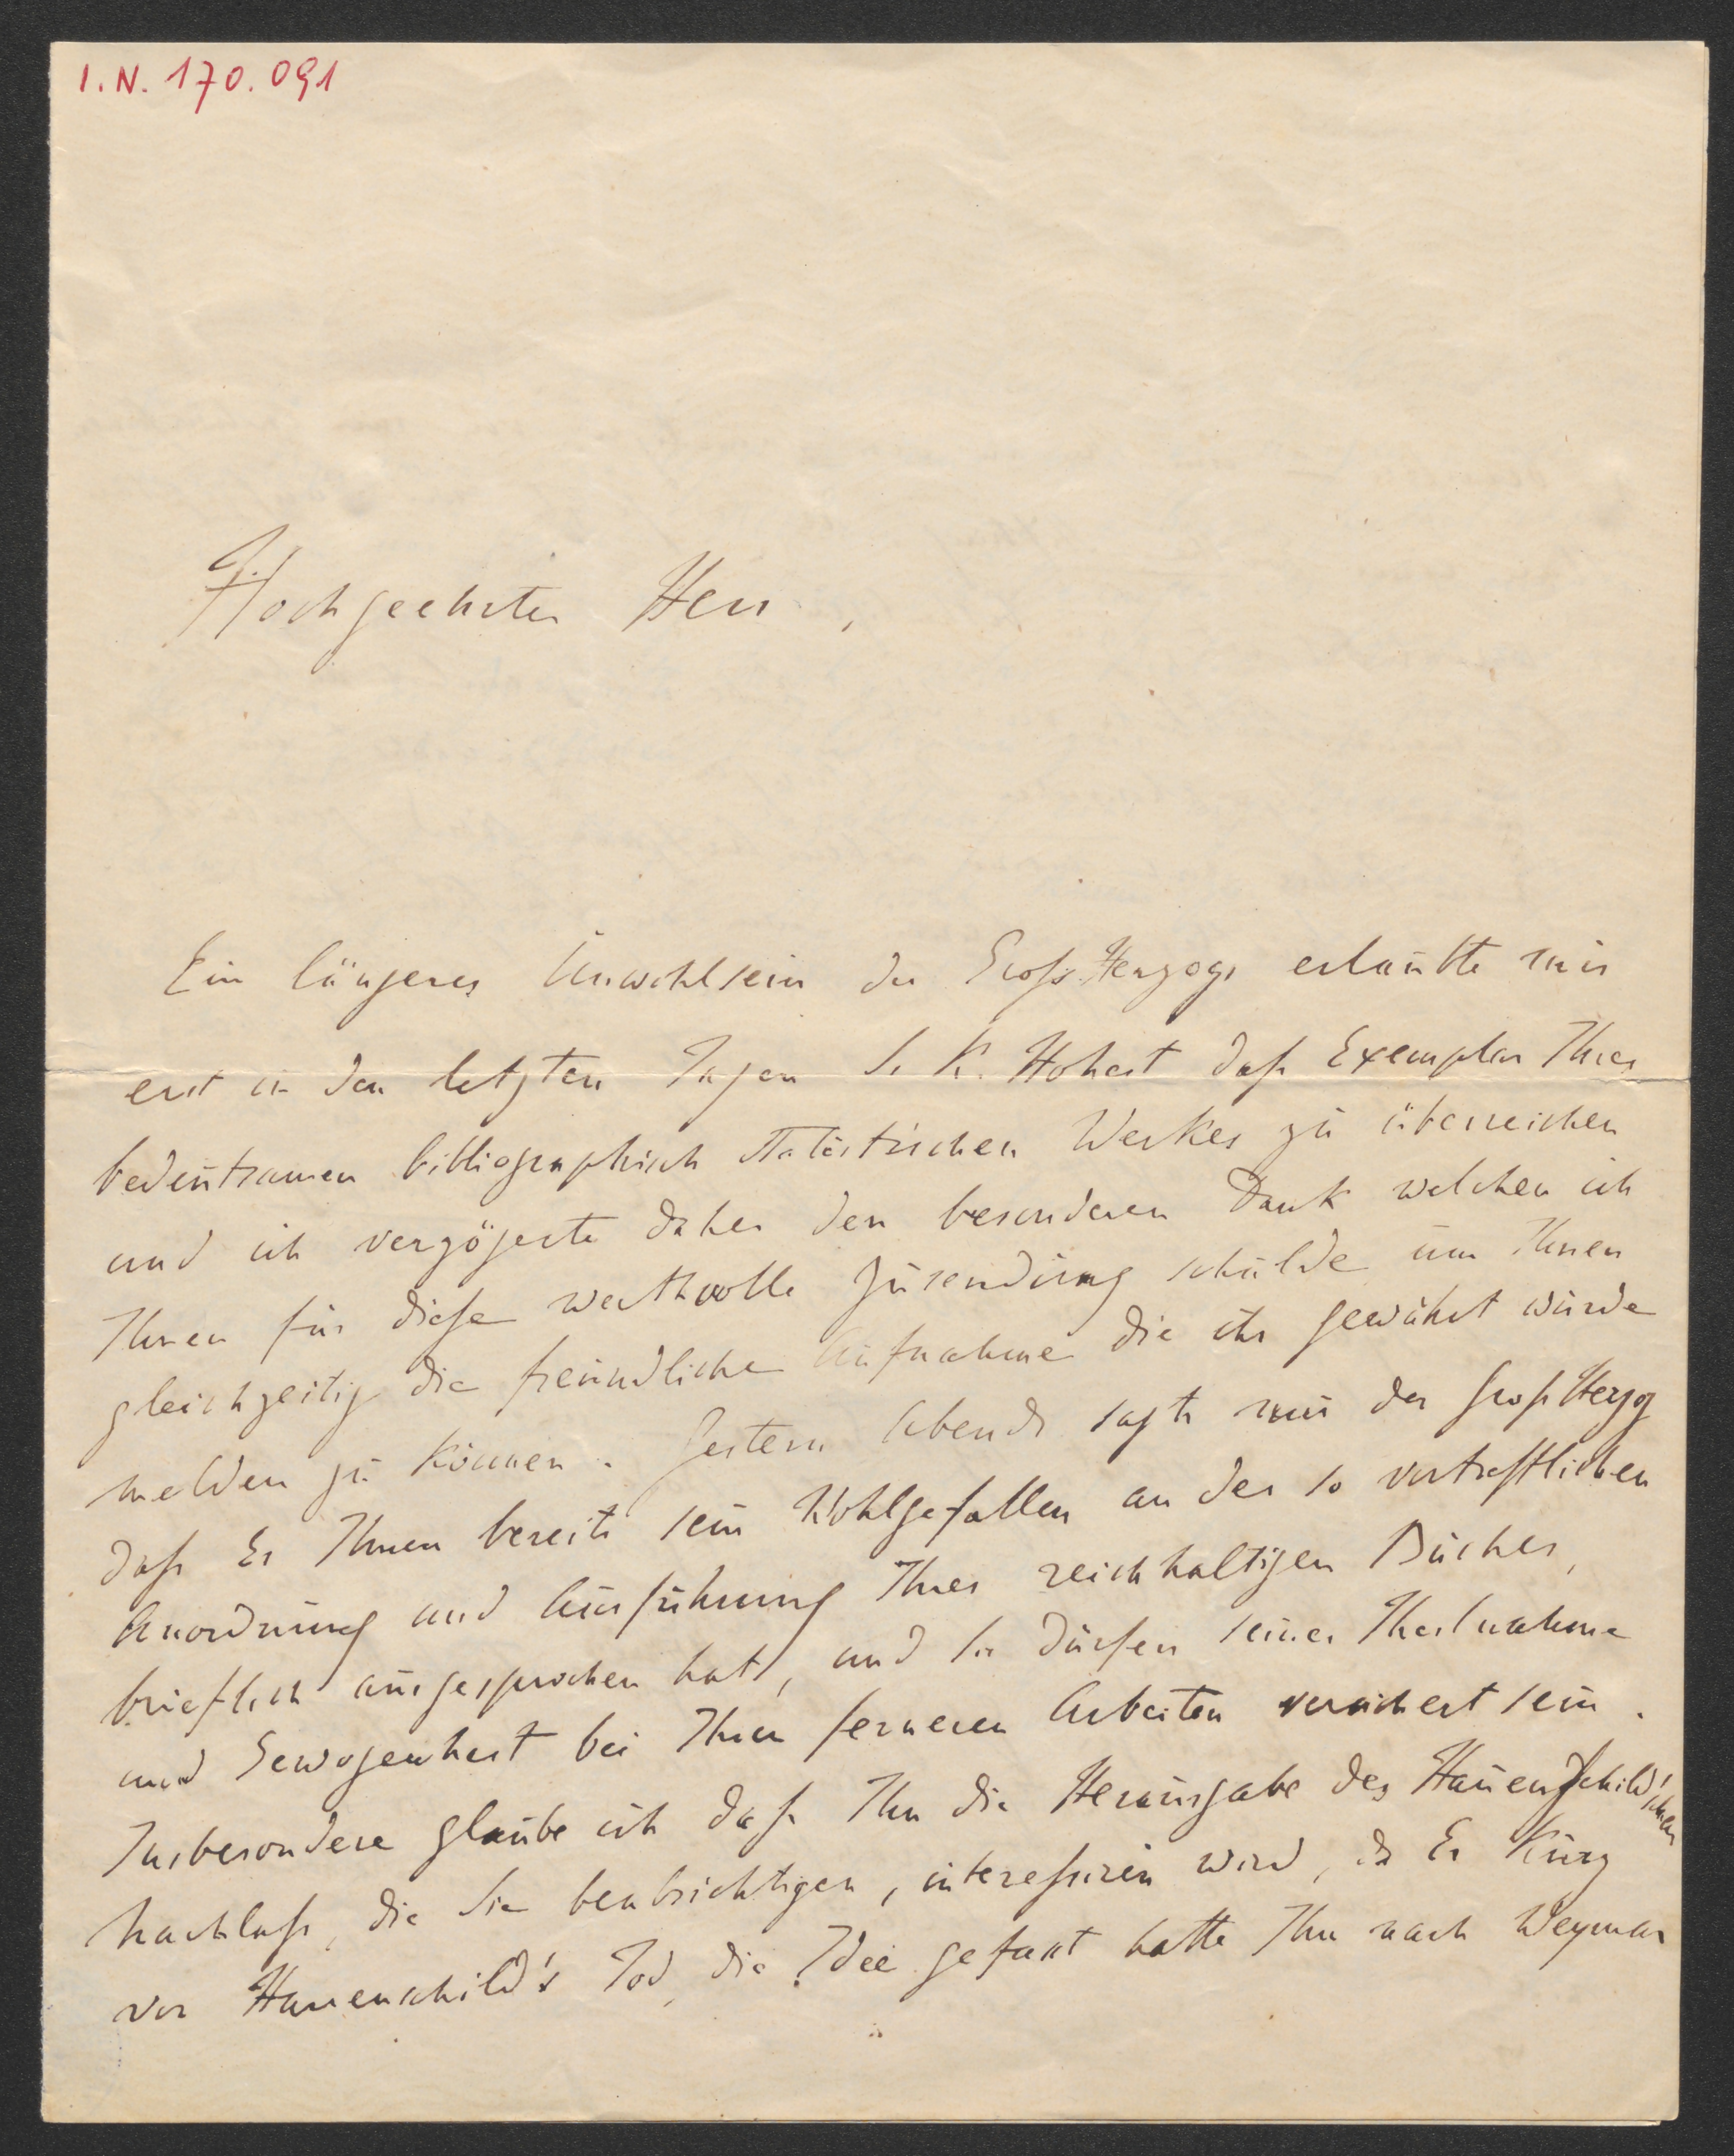 I.N. 170.091
Hochgeehrter Herr,
Ein längeres Unwohlsein des GrossHerzogs erlaubte mir
erst in den letzten Tagen S. K. Hoheit dass Exemplar Ihres
bedeutsamen bibliographisch statistischen Werkes zu überreichen
und ich verzögerte daher den besonderen Dank welchen ich
Ihnen für diese werthvolle Zusendung schulde um Ihnen
gleichzeitig die freundliche Aufnahme die ihr gewährt wurde
melden zu können. Gestern Abends sagte mir der GrossHerzog
dass Er Ihnen bereits sein Wohlgefallen an der so vortrefflichen
Anordnung und Ausführung Ihres reichhaltigen Buches,
brieflich ausgesprochen hat, und Sie dürfen seiner Theilnahme
und Gewogenheit bei Ihren ferneren Arbeiten versichert sein.
Insbesondere glaube ich dass Ihn die Herausgabe des Hauenschild'schen
Nachlass, die Sie beabsichtigen, interessiren wird, da Er kurz
vor Hauenschild's Tod, die Idee gefasst hatte Ihn nach Weymar